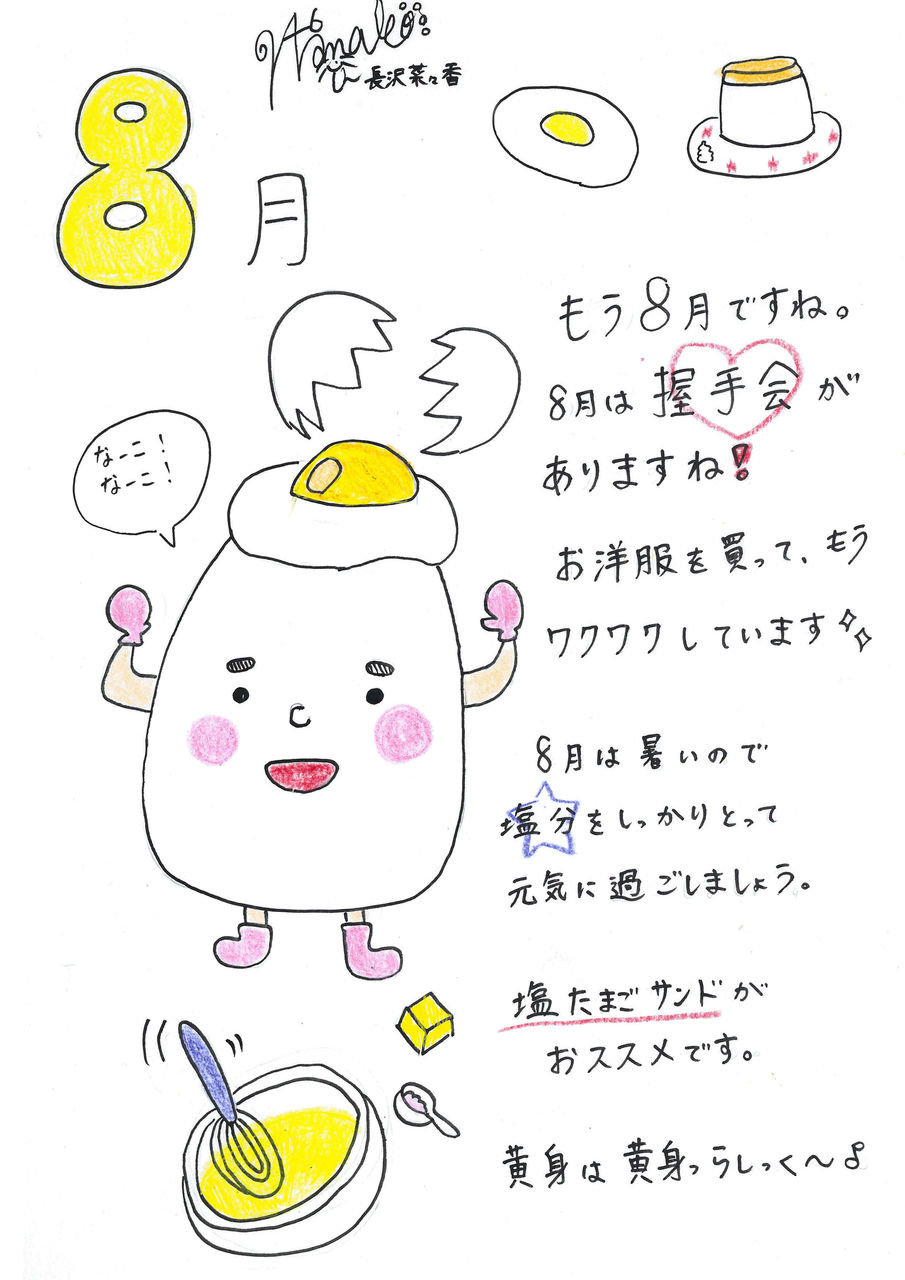 Nanako
長沢菜々香
8月
もう8月ですね。
8月は握手会が
ありますね!
お洋服を買って、もう
ワクワクしています
なーこ!
なーこ!
8月は暑いので
塩分をしっかりとって
元気に過ごしましょう。
塩たまごサンドが
おススメです。
黄身は黄身っらしっく〜♪